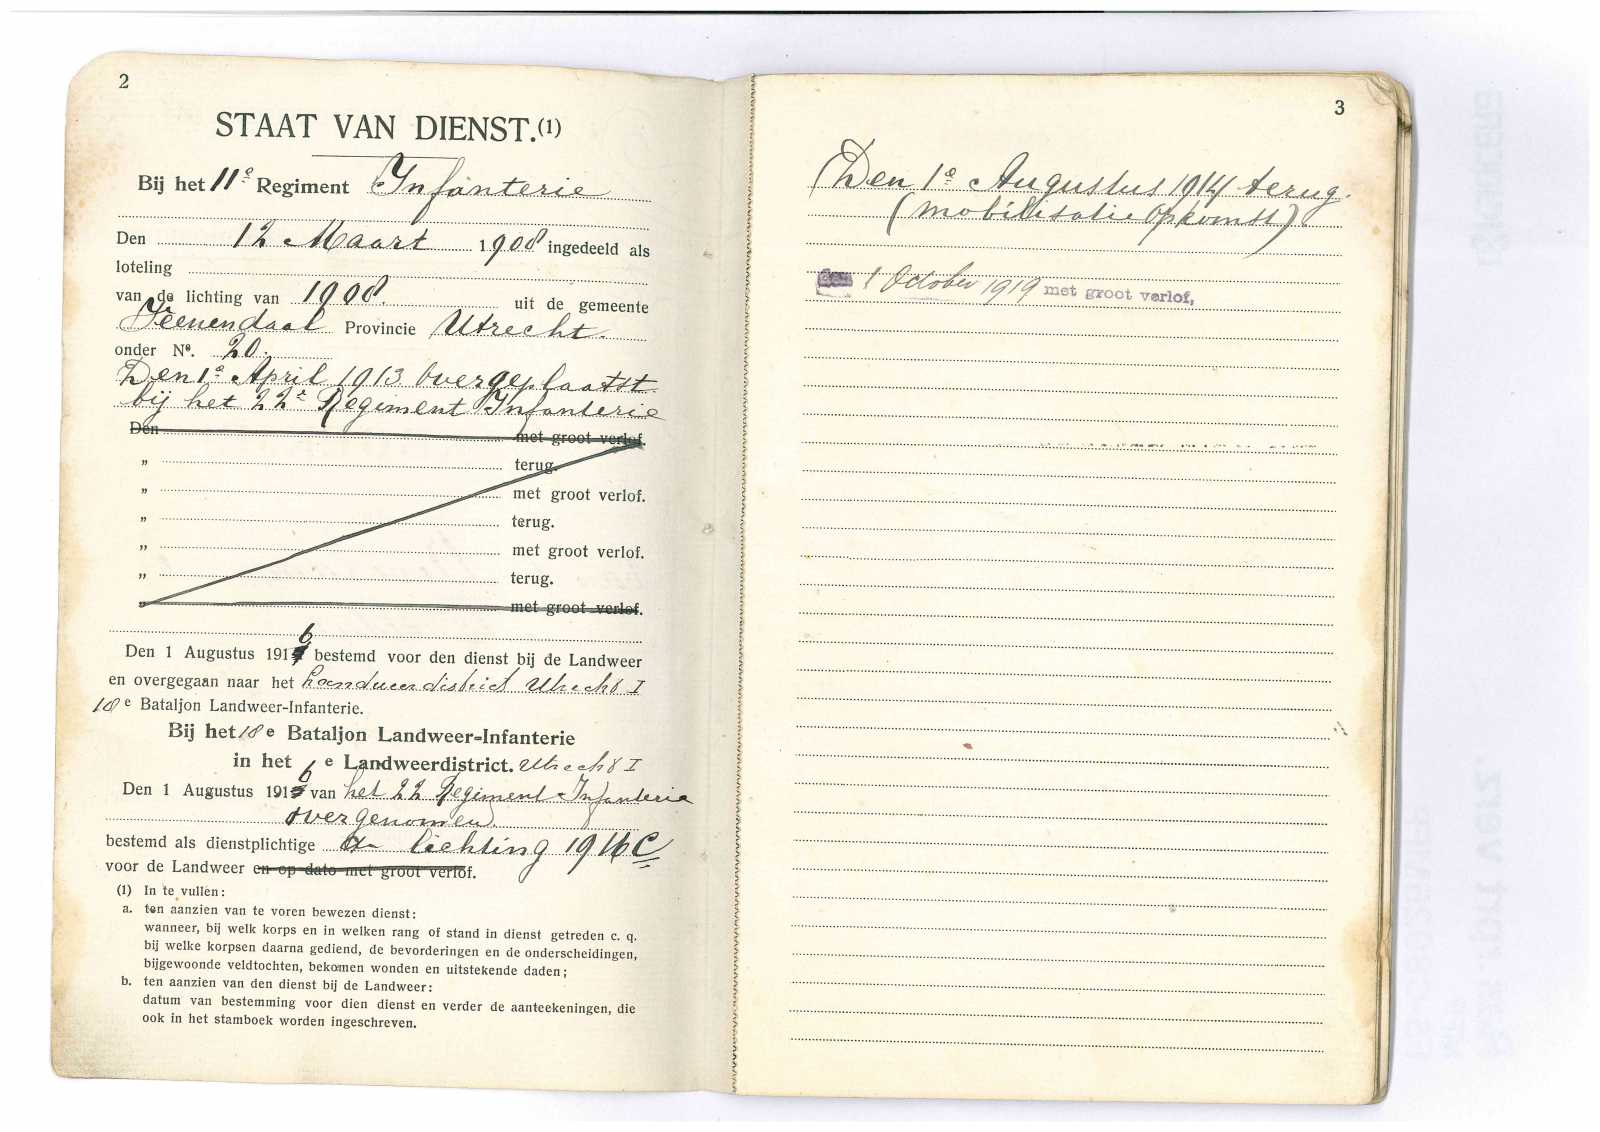 2
STAAT VAN DIENST.(1)
Bij het 11e Regiment Infanterie
Den 12 Maart 1908 ingedeeld als
loteling
van de lichting van 1908. uit de gemeente
Veenendaal Provincie Utrecht.
onder No. 20.
Den 1e April 1913 overgeplaatst
bij het 22e Regiment Infanterie
Den met groot verlof.
„ terug.
„ met groot verlof.
„ terug.
„ met groot verlof.
„ terug.
„ met groot verlof.
Den 1 Augustus 1916 bestemd voor den dienst bij de Landweer
en overgegaan naar het Landweerdistrict Utrecht I
18e Bataljon Landweer-Infanterie.
Bij het 18e Bataljon Landweer-Infanterie
in het 6e Landweerdistrict. Utrecht I
Den 1 Augustus 1916 van het 22 Regiment Infanterie
overgenomen.
bestemd als dienstplichtige der lichting 1916 C
voor de Landweer en op dato met groot verlof.
(1) In te vullen:
a. ten aanzien van te voren bewezen dienst:
wanneer, bij welk korps en in welken rang of stand in dienst getreden c. q.
bij welke korpsen daarna gediend, de bevorderingen en de onderscheidingen,
bijgewoonde veldtochten, bekomen wonden en uitstekende daden;
b. ten aanzien van den dienst bij de Landweer:
datum van bestemming voor dien dienst en verder de aanteekeningen, die
ook in het stamboek worden ingeschreven.
3
Den 1e Augustus 1914 terug.
(mobilisatie opkomst).
den 1 October 1919 met groot verlof,